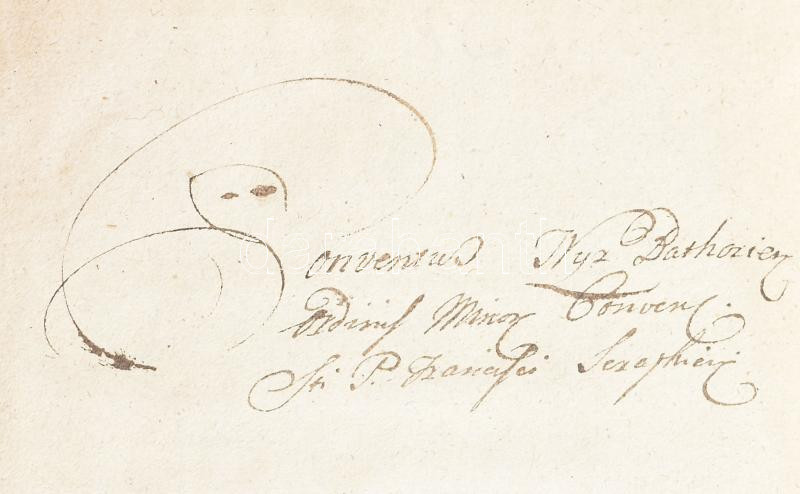 Conventus Nyr Bathorien
Ordinis Minor Conven.
Sti P. Francisci Seraphici